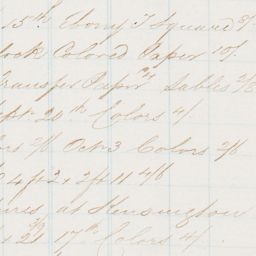 15th Ebony T Square 3/
ook Colored Paper 10/
ransfer Paper Sables 2/3
pt 20th Colors 4/
2/6 Oct 3 Colors 2/6
4 ft 2 x 2 ft 11 4/6
res at Kensington
x 21 17th Colors 4/